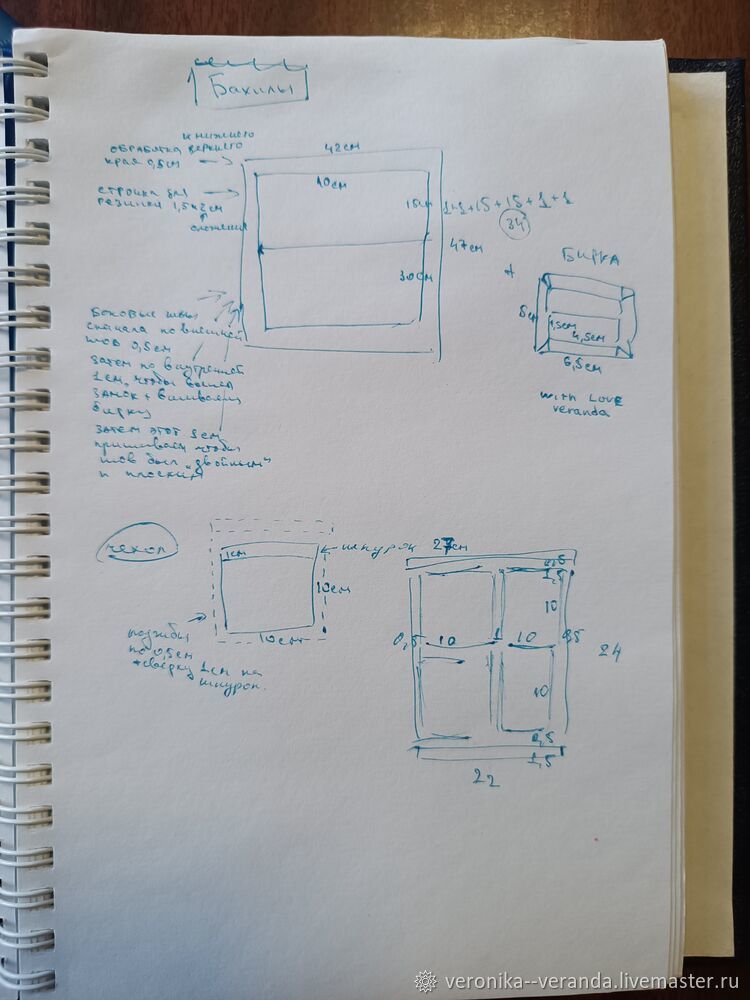 Бахилы
и нижнего
обработка верхнего
края 0,5см
42см
строчка для
резинки 1,5х2см
сложения
40см
15см
1+1+15+15+1+1
34
47см
30см
+
Бирка
5см
1,5см
4,5см
6,5см
with Love
veranda
Боковые швы
сначала по внешней
шов 0,5см
затем по внутренней
1см, чтобы вошел
замок + вшиваем
бирку
затем этот 1см
пришиваем чтобы
шов был "двойным"
и плоским
чехол
шнурок
1см
10см
10см
подгибы
по 0,5см
+сверху 1см на
шнурок.
27см
0,5
1,5
10
0,5
10
1
10
0,5
24
10
0,5
1,5
22
veronika--veranda.livemaster.ru